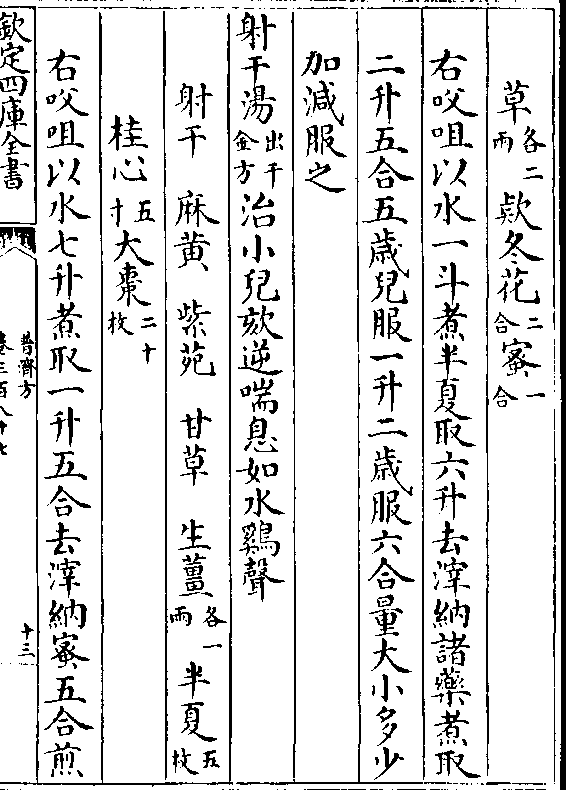 草各二兩欵冬花二合蜜一合
右㕮咀以水一斗煮半夏取六升去滓納諸藥煮取
二升五合五歳兒服一升二歳服六合量大小多少
加減服之
射干湯出千金方治小兒欬逆喘息如水鷄聲
射干 麻黄 紫苑 甘草 生薑各一兩 半夏五枚
桂心五寸大棗二十枚
右㕮咀以水七升煮取一升五合去滓納蜜五合煎
欽定四庫全書
普濟方
卷三百八十七
十三